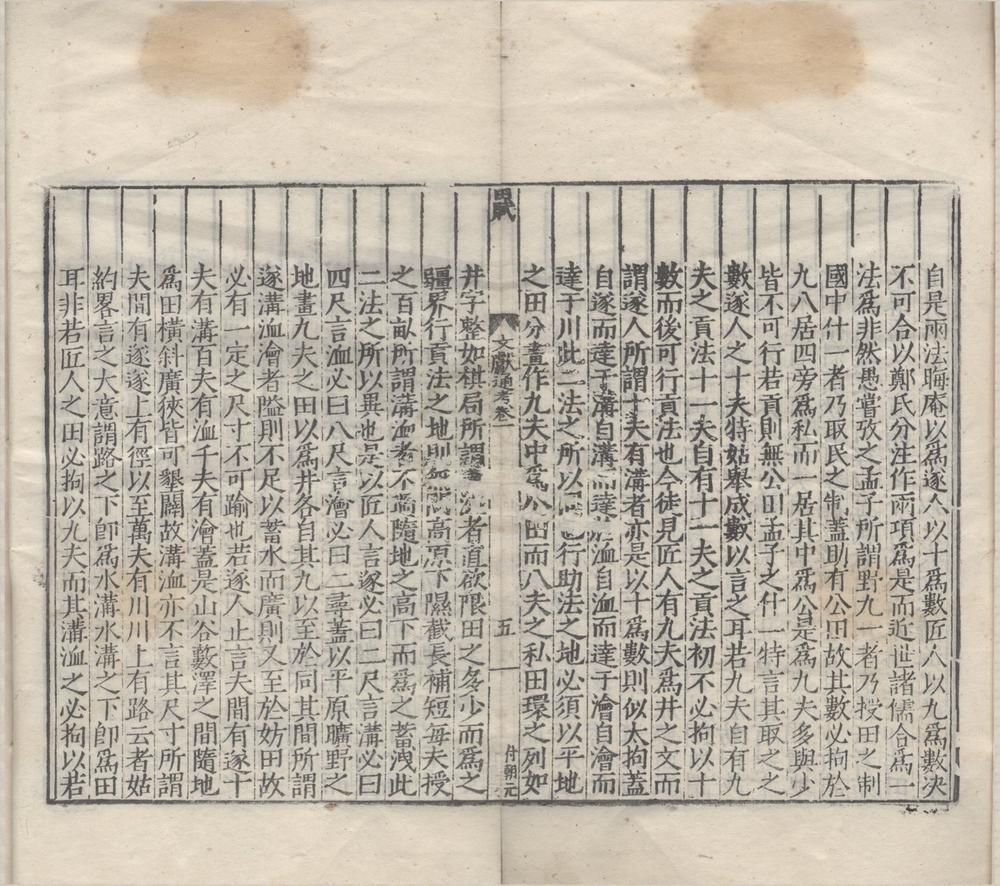 自是兩法晦庵以爲遂人以十爲數匠人以九爲數决
不可合以鄭氏分注作兩項爲是而近世諸儒合爲一
法爲非然愚嘗攷之孟子所謂野九一者乃授田之制
國中什一者乃取民之制蓋助有公田故其數必拘於
九八居四旁爲私而一居其中爲公是爲九夫多與少
皆不可行若貢則無公田孟子之什一特言其取之之
數遂人之十夫特姑舉成數以言之耳若九夫自有九
夫之貢法十一夫自有十一夫之貢法初不必拘以十
數而後可行貢法也今徒見匠人有九夫爲井之文而
謂遂人所謂十夫有溝者亦是以十爲數則似太拘蓋
自遂而達于溝自溝而達于洫自洫而達于澮自澮而
達于川此二法之所以同也行助法之地必須以平地
之田分畫作九夫中爲公田而八夫之私田環之列如
文獻通考卷一
五
付朝元
井字整如棋局所謂溝洫者直欲限田之多少而爲之
疆界行貢法之地則高原下隰截長補短每夫授
之百畝所謂溝洫者不過隨地之高下而爲之蓄洩此
二法之所以異也是以匠人言遂必曰二尺言溝必曰
四尺言洫必曰八尺言澮必曰二尋蓋以平原曠野之
地畫九夫之田以爲井各自其九以至於同其間所謂
遂溝洫澮者隘則不足以蓄水而廣則又至於妨田故
必有一定之尺寸不可踰也若遂人止言夫間有遂十
夫有溝百夫有洫千夫有澮蓋是山谷藪澤之間隨地
爲田橫斜廣狹皆可墾闢故溝洫亦不言其尺寸所謂
夫間有遂遂上有徑以至萬夫有川川上有路云者姑
約畧言之大意謂路之下卽爲水溝水溝之下卽爲田
耳非若匠人之田必拘以九夫而其溝洫之必拘以若